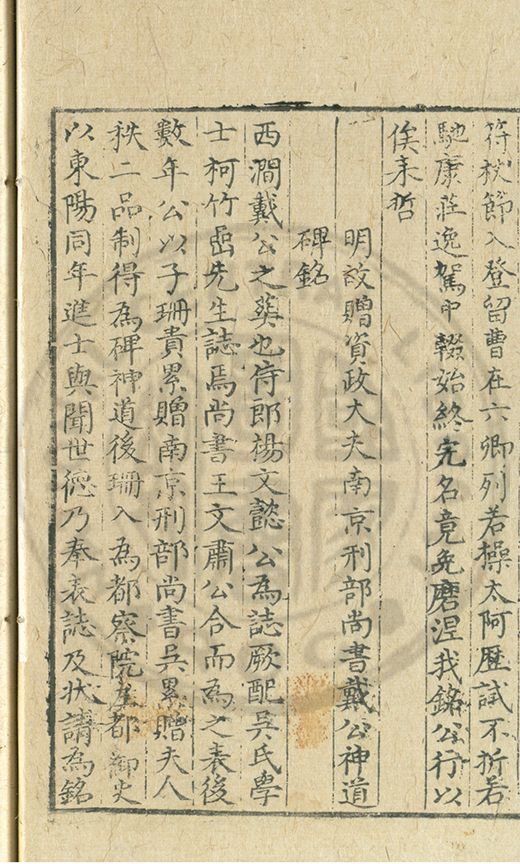 符杖節入登留曹在六卿列若操太阿歷試不折若
馳康莊逸駕中輟始終完名竟免磨涅我銘公行以
俟来哲
明故贈資政大夫南京刑部尚書戴公神道
碑銘
西澗戴公之葬也侍郎楊文懿公為誌厥配吳氏學
士柯竹嵒先生誌焉尚書王文肅公合而為之表後
數年公以子珊貴累贈南京刑部尚書吳累贈夫人
秩二品制得為碑神道後珊入為都察院左都御史
以東陽同年進士與聞世德乃奉表誌及狀請為銘